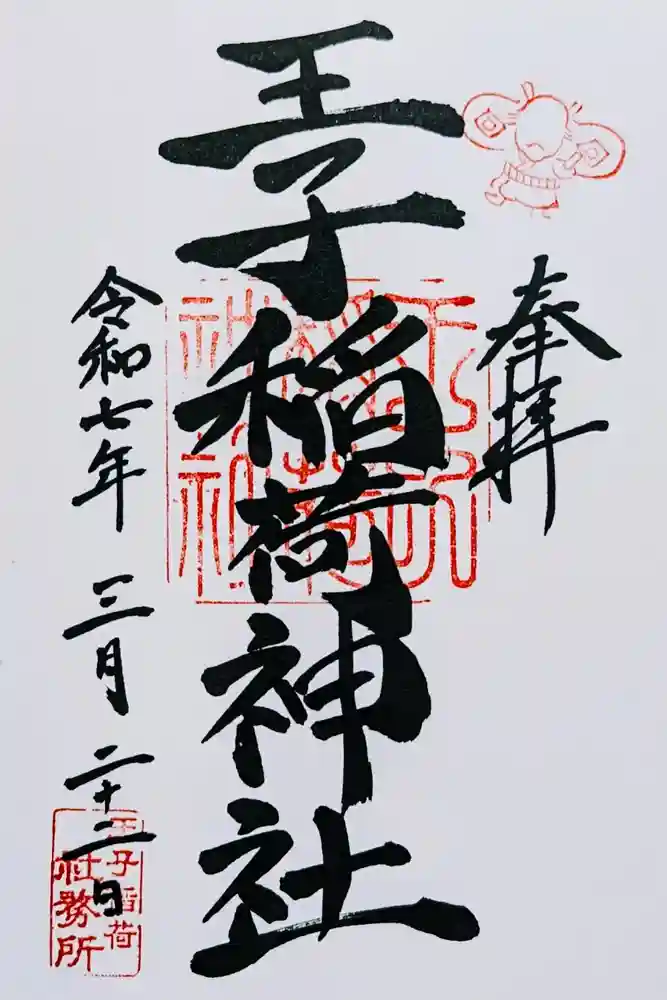 奉拝
王子稲荷神社
王子稲荷神社
令和七年三月二十二日
王子稲荷
社務所